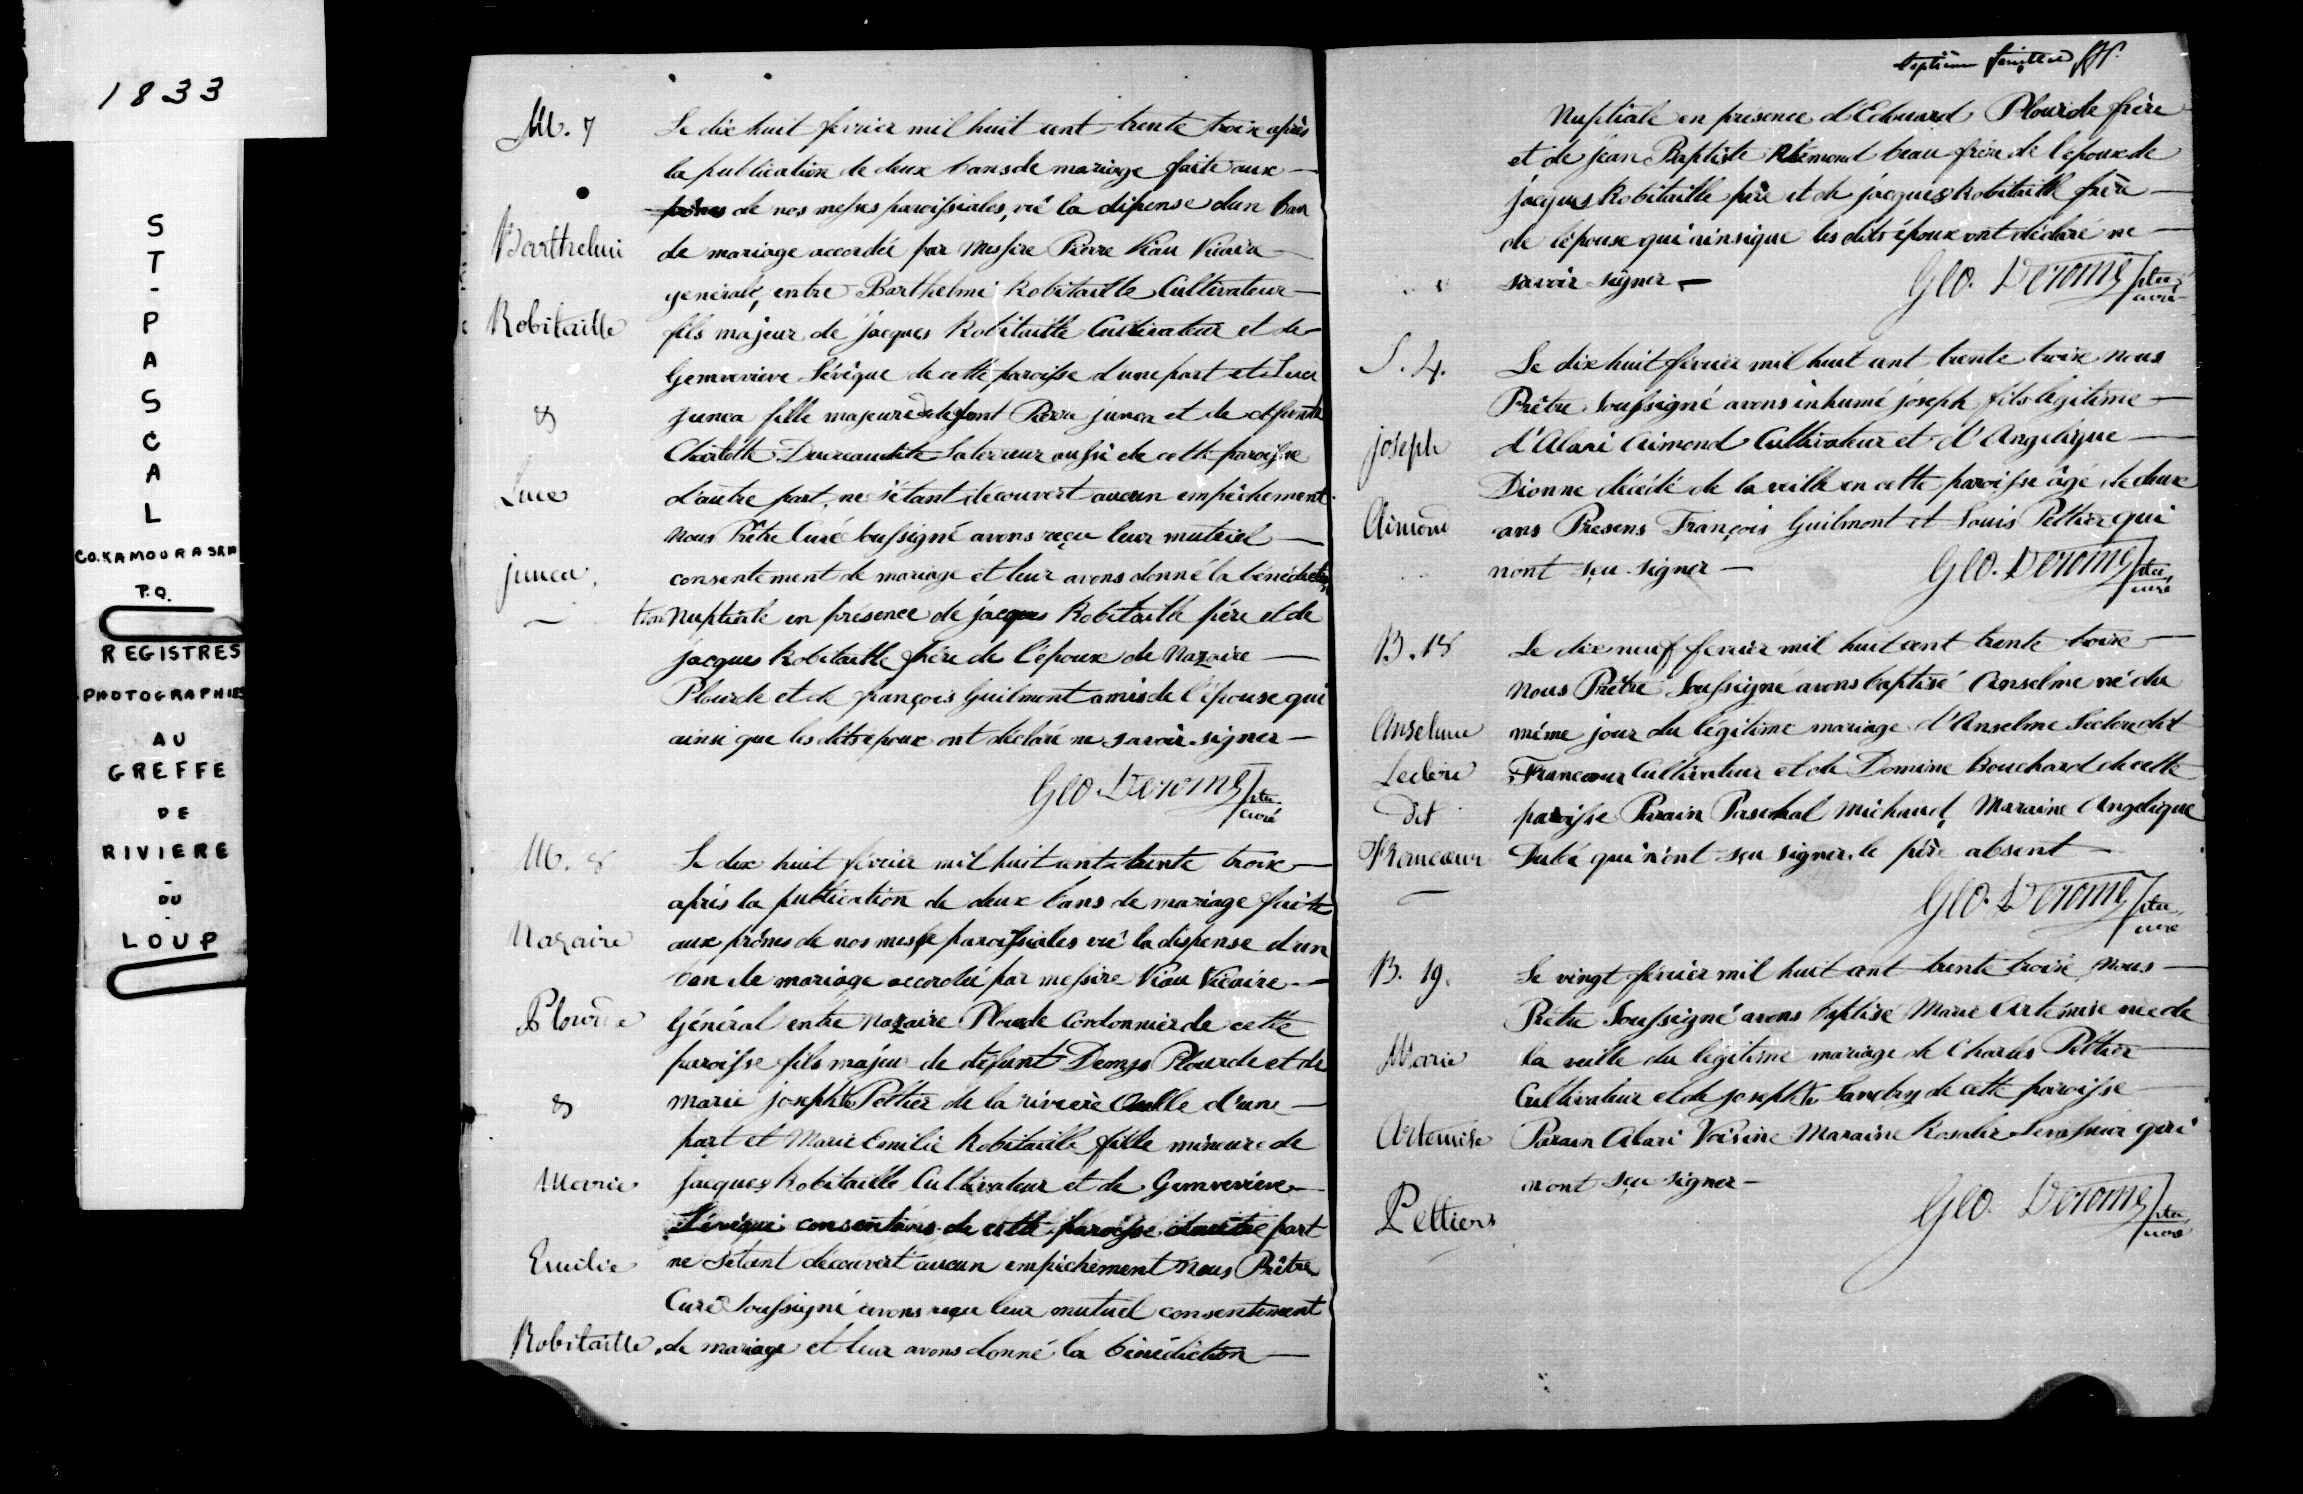 1833
ST-PASCAL
CO. KAMOURASKA
P.Q.
REGISTRES
PHOTOGRAPHIES
AU
GREFFE
DE
RIVIERE
-
DU
-
LOUP
M. 7
Barthelmi
Robitaille
&
Luce
junca
Le dix huit fevrier mil huit cent trente trois après
la publication de deux bans de mariage faite aux
prônes de nos messes paroissiales, vû la dispense dun ban
de mariage accordée par Messire Pierre Viau Vicaire
general, entre Barthelmi Robitaille Cultivateur
fils majeur de jacques Robitaille Cultivateur et de
Genevieve Lévêque de cette paroisse d'une part et Luce
junca fille majeure de defunt Pierre junca et de defunte
Charlotte Laterreur aussi de cette paroisse
d'autre part, ne s'étant découvert aucun empêchement
nous Prêtre Curé Soussigné avons reçu leur mutuel
consentement de mariage et leur avons donné la bénédic
tion Nuptiale en présence de jacques Robitaille père et de
jacques Robitaille frère de l'époux de Nazaire
Plourde et de françois Guilmont amis de l'épouse qui
ainsi que les dits epoux ont déclaré ne savoir signer
Geo. Derome Ptre
curé
M. 8
Nazaire
Plourde
&
Marie
Emilie
Robitaille
Le dix huit fevrier mil huit cent trente trois
après la publication de deux bans de mariage faite
aux prônes de nos messe paroissiales vû la dispense d'un
ban de mariage accordée par messire Viau Vicaire
Général entre Nazaire Plourde Cordonnier de cette
paroisse fils majeur de défunt Plourde et de
marie josephte Peltier de la rivière Ouelle d'une
part et Marie Emilie Robitaille fille mineure de
Jacques Robitaille Cultivateur et de Genevieve
Lévêque consentans de cette paroisse d'autre part
ne s'etant découvert aucun empêchement nous Prêtre
Curé Soussigné avons reçu leur mutuel consentement
de mariage et leur avons donné la bénédiction
Septième feuillet
Nuptiale en présence d'Edouard Plourde frère
et de jean Baptiste Raimond beau frère de l'époux de
jacques Robitaille père et de jacques Robitaille frère
de l'épouse qui ainsi que les dits époux ont déclaré ne
savoir signer
Geo. Derome Ptre
curé
S. 4.
joseph
Aimond
Le dix huit fevrier mil huit cent trente trois nous
Prêtre Soussigné avons inhumé joseph fils légitime
d'Alari Aimond Cultivateur et d'Angelique
Dionne décédé de la veille en cette paroisse âgé de deux
ans Presens François Guilmont et Louis Peltier qui
nont sçu signer
Geo. Derome Ptre
curé
B. 18
Anselme
Leclere
Dit
Francœur
Le dix neuf fevrier mil huit cent trente trois
nous Prêtre Soussigné avons baptisé Anselme né du
même jour du légitime mariage d'Anselme Leclere dit
Francœur Cultivateur et de Domine Bouchard de cette
paroisse Parain Paschal Michaud, Maraine Angelique
Dubé qui n'ont sçu signer, le père absent
Geo. Derome Ptre
curé
B. 19.
Marie
Artemise
Peltiers
Le vingt fevrier mil huit cent trente trois nous
Prêtre Soussigné avons baptisé Marie Artémise née de
la veille du légitime mariage de Charles Peltier
Cultivateur et de josephte Landry de cette paroisse
Parain Alari Voisine Maraine Rosalie qui
n'ont sçu signer
Geo. Derome Ptre
curé